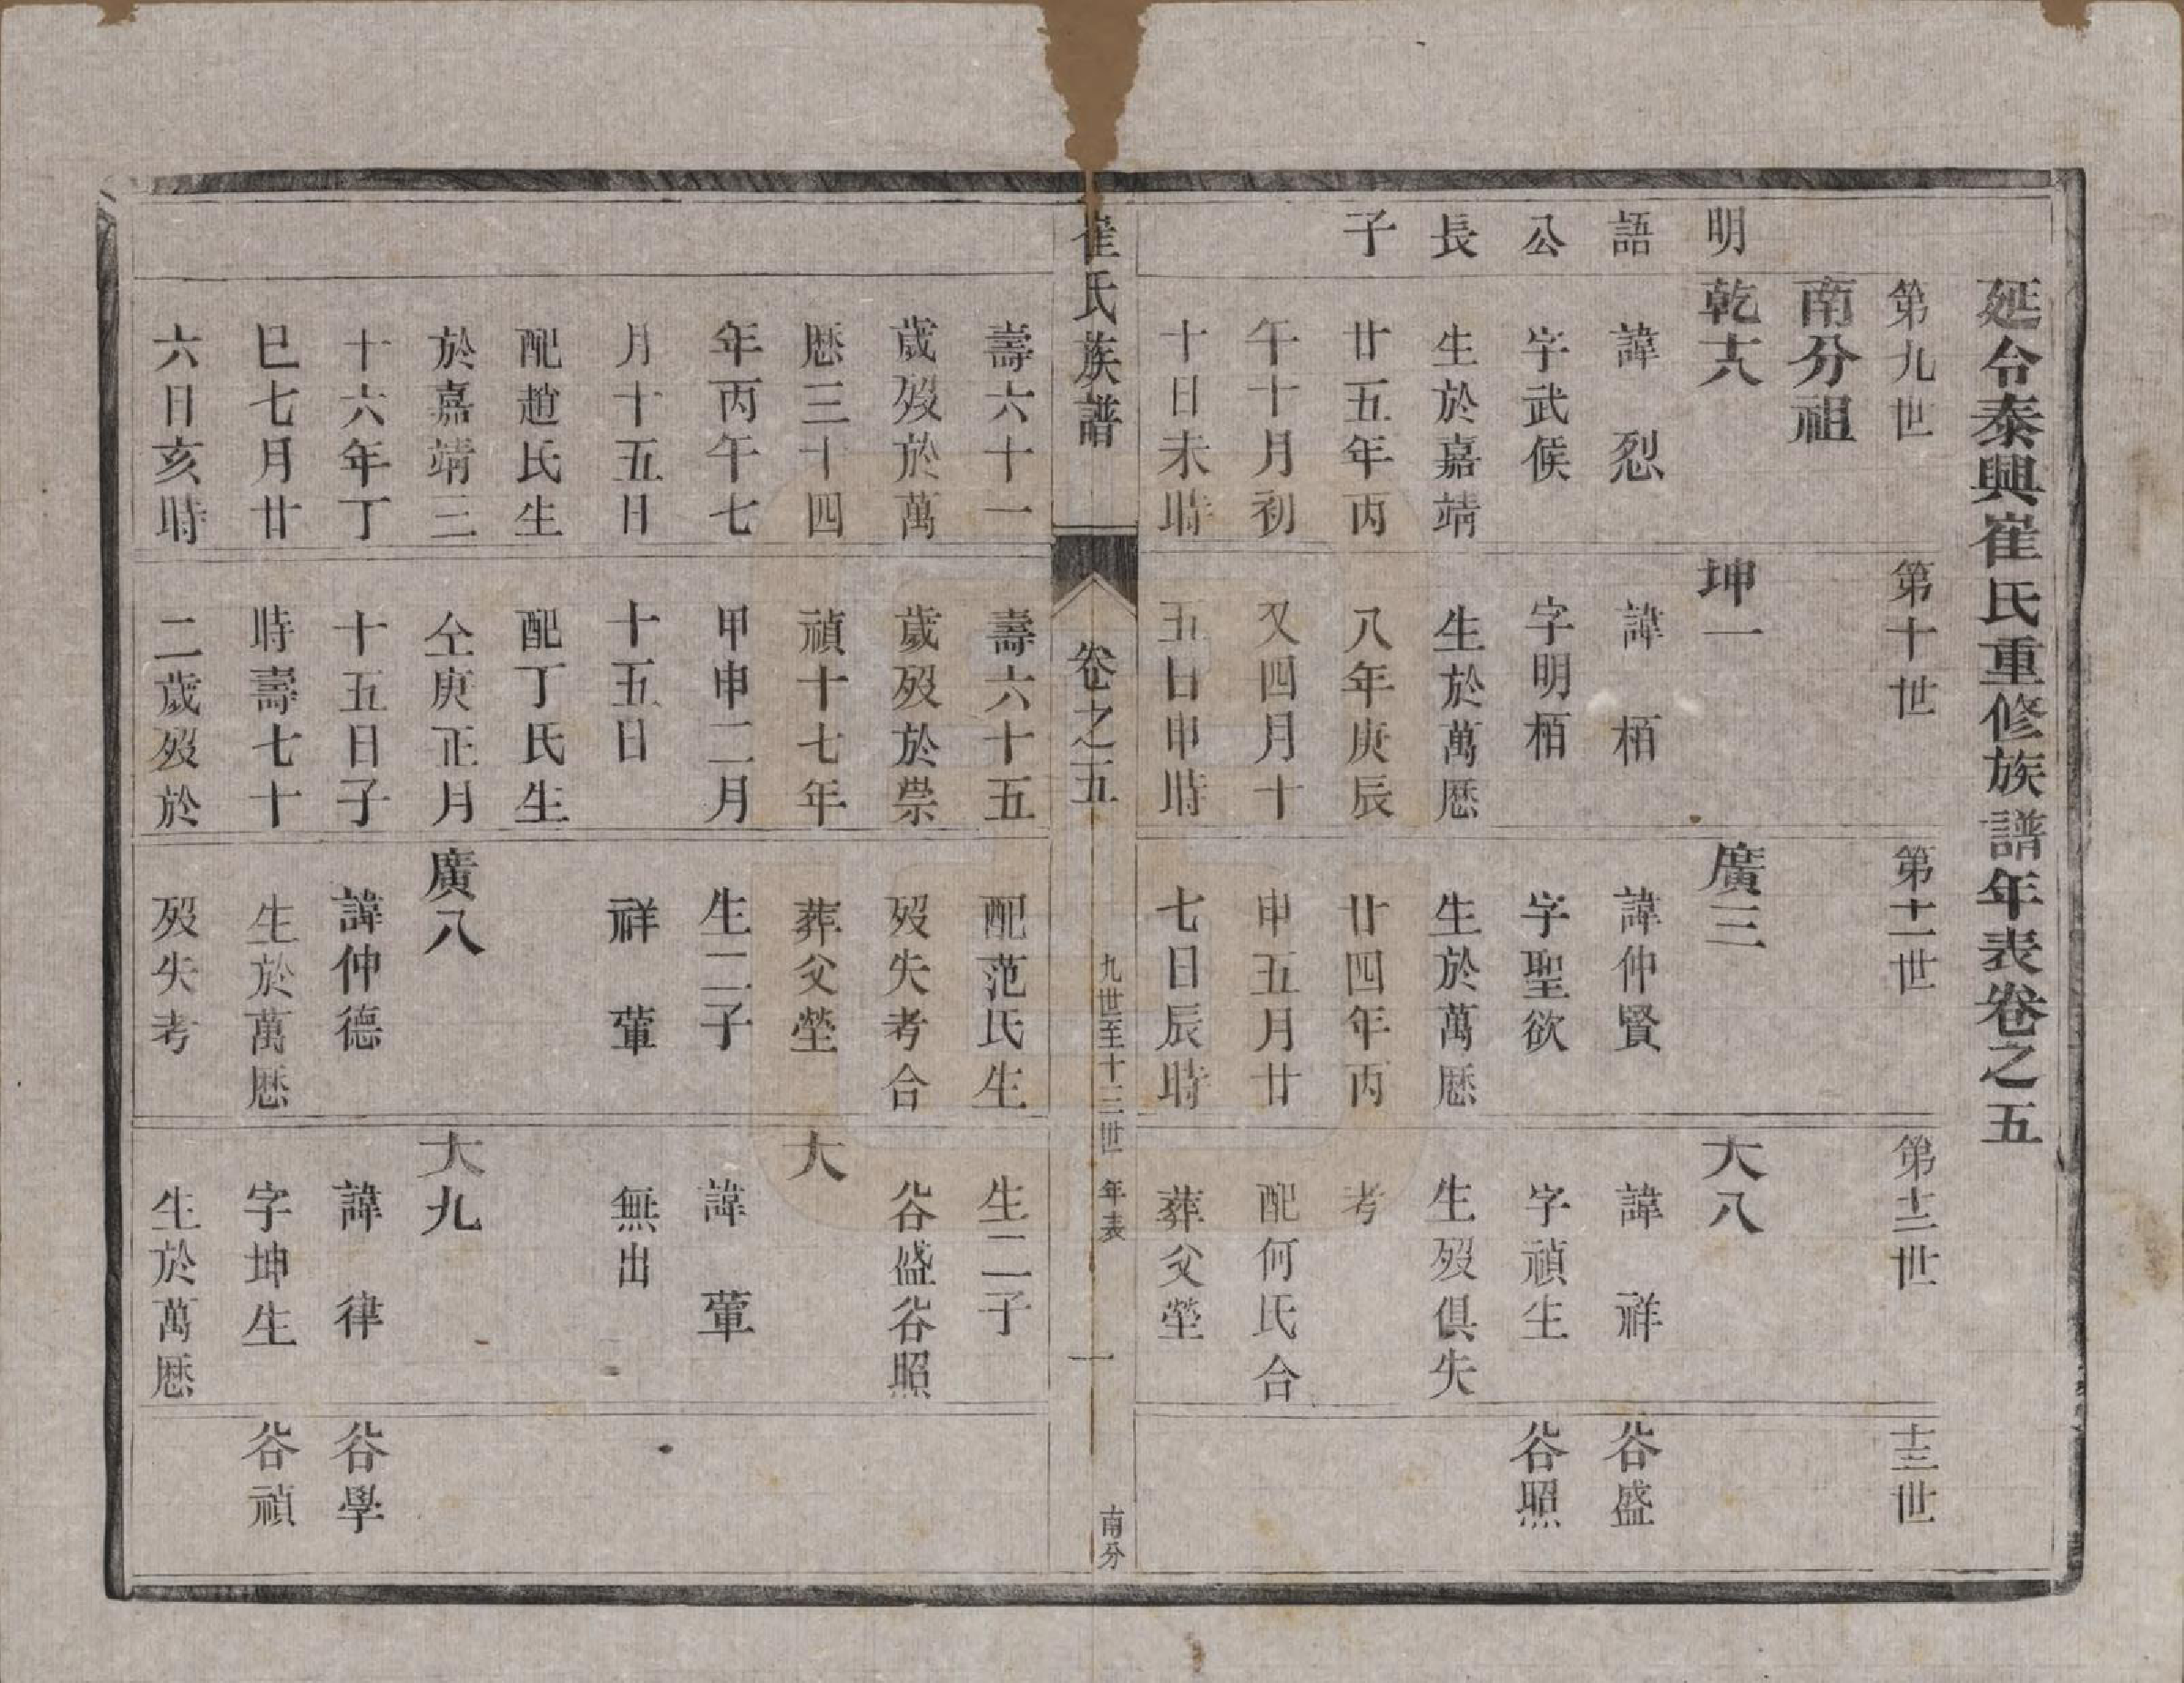 延令泰興崔氏重修族譜年表卷之五
第九世
南分祖
明
語
公
長
子
乾六
諱烈
字武候
生於嘉靖
廿五年丙
午十月初
十日未時
第十世
坤一
諱栢
字明栢
生於萬厯
八年庚辰
又四月十
五日申時
第十一世
廣三
諱仲賢
字聖欲
生於萬厯
廿四年丙
申五月廿
七日辰時
第十二世
大八
諱祥
字禎生
生歿俱失
考
配何氏合
葬父塋
十三世
谷盛
谷照
崔氏族譜
卷之五
九世至十三世
年表
一
南分
壽六十一
歲歿於萬
厯三十四
年丙午七
月十五日
配趙氏生
於嘉靖三
十六年丁
巳七月廿
六日亥時
壽六十五
歲歿於崇
禎十七年
甲申二月
十五日
配丁氏生
仝庚正月
十五日子
時壽七十
二歲歿於
配范氏生
歿失考合
葬父塋
生二子
祥葷
廣八
諱仲德
生於萬厯
歿失考
生二子
谷盛谷照
大
諱葷
無出
大九
諱律
字坤生
生於萬厯
谷學
谷禎